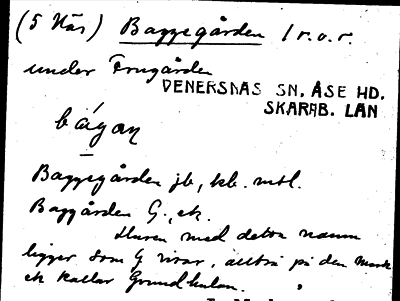 (5 Näs) Baggegården 1 r. o. r.
under Frugården
VENERSNAS SN. ÅSE HD.
SKARAB. LAN
bágan
Baggegården jb, kb. mtl.
Baggården G., ek.
Husen med detta namn
ligger som G visar, alltså på den mark
ek kallar Grundkulan.